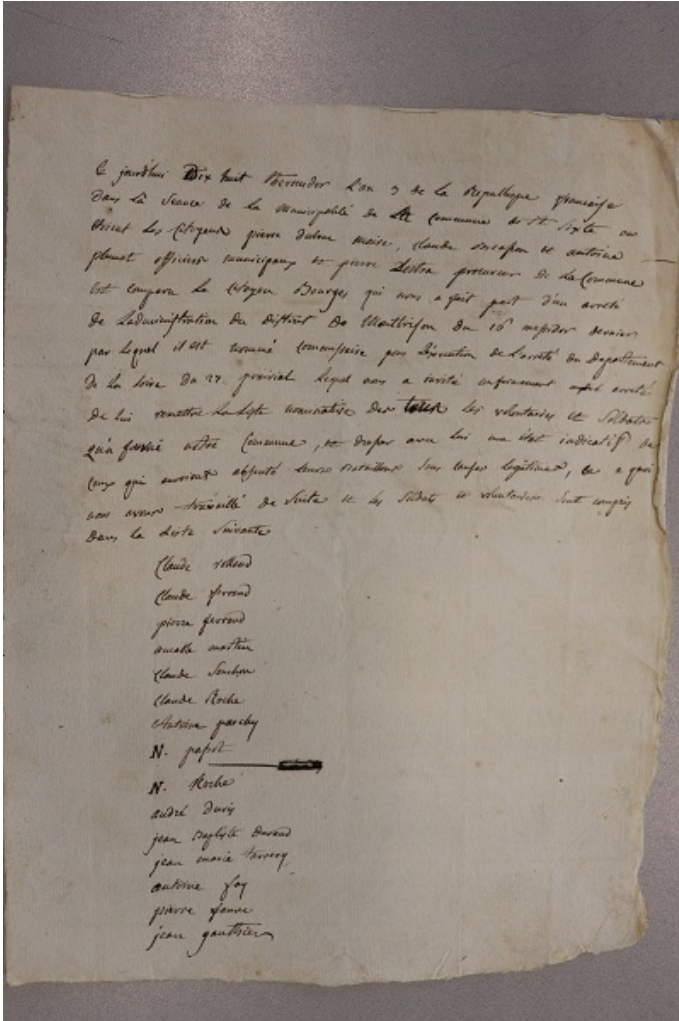 Ce jourd'hui Dix huit thermidor L'an 3 de la Republique francaise
Dans la Seance de la municipalité de la commune de St Sixte ou
étoient les citoyens pierre maire, claude et antoine
plumet officiers municipaux et pierre Lestra procureur de la Commune
Est comparu Le Citoyen Bourges qui nous a fait part d'un arreté
de Ladministration du district de Montbrison du 16 messidor dernier
par lequel il est nommé commissaire pour L'éxecution de L'arreté du departement
de la Loire du 27 prairial lequel nous a invité arreté
de lui remettre La Liste nominative des les volontaires et Soldats
qu'a fourni notre Commune, et draper avec lui un état indicatif de
ceux qui auroient leurs Bataillons Sans causes legitimes, Ce a quoi
nous avons travaillé de Suite et les Soldats et volontaires Sont compris
Dans la Liste Suivante
Claude rolland
Claude ferrand
pierre ferrand
martin
Claude Souchon
Claude Roche
Antoine parchy
N. papot
N. Roche
andré Duris
jean Baptiste Durand
jean marie
antoine fay
pierre faure
jean gauthier